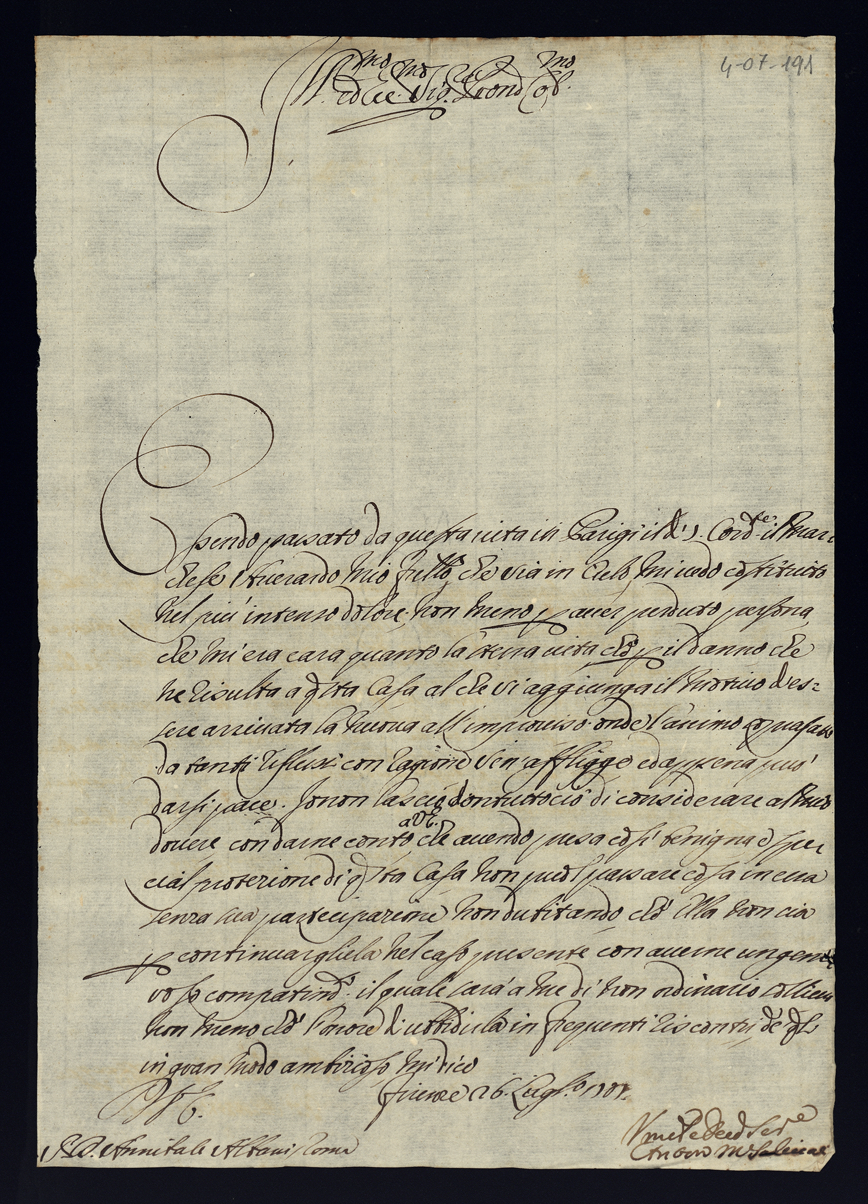 4-07-191
Ill.mo ed Ecc.mo Sig.re Pron Col.mo
Essendo passato da questa vita in Parigi il di 9. Cor.te il Mar-
chese Averardo mio fratello che sia in Cielo, mi vedo costituito
nel più intenso dolore, non meno p aver perduto persona,
che mi era cara quanto la stessa vita che p il danno che
ne risulta a q.sta Casa al che si aggiunga il motivo d'es=
sere arrivata la nuova all'improviso onde l'animo
da tanti riflessi con ragione s'en affligge ed appena può
darsi pace. Io non lascio contuttociò di considerare al mio
dovere con darne conto a V.E. che avendo presa così benigna e spe
cial protezione di q.sta Casa non può passare cosa in essa
senza sua partecipazione non dubitando che Ella non sia
p continuargliela nel caso presente con averne un gene
roso compatim.to il quale sarà a me di non ordinario sollievo
non meno che l'onore di ubbidirla in frequenti riscontri de q.li
in gran modo ambizioso mi dico
D V. E.
Firenze 26. Luglio 1701.
S.D. Annibale Albani Roma